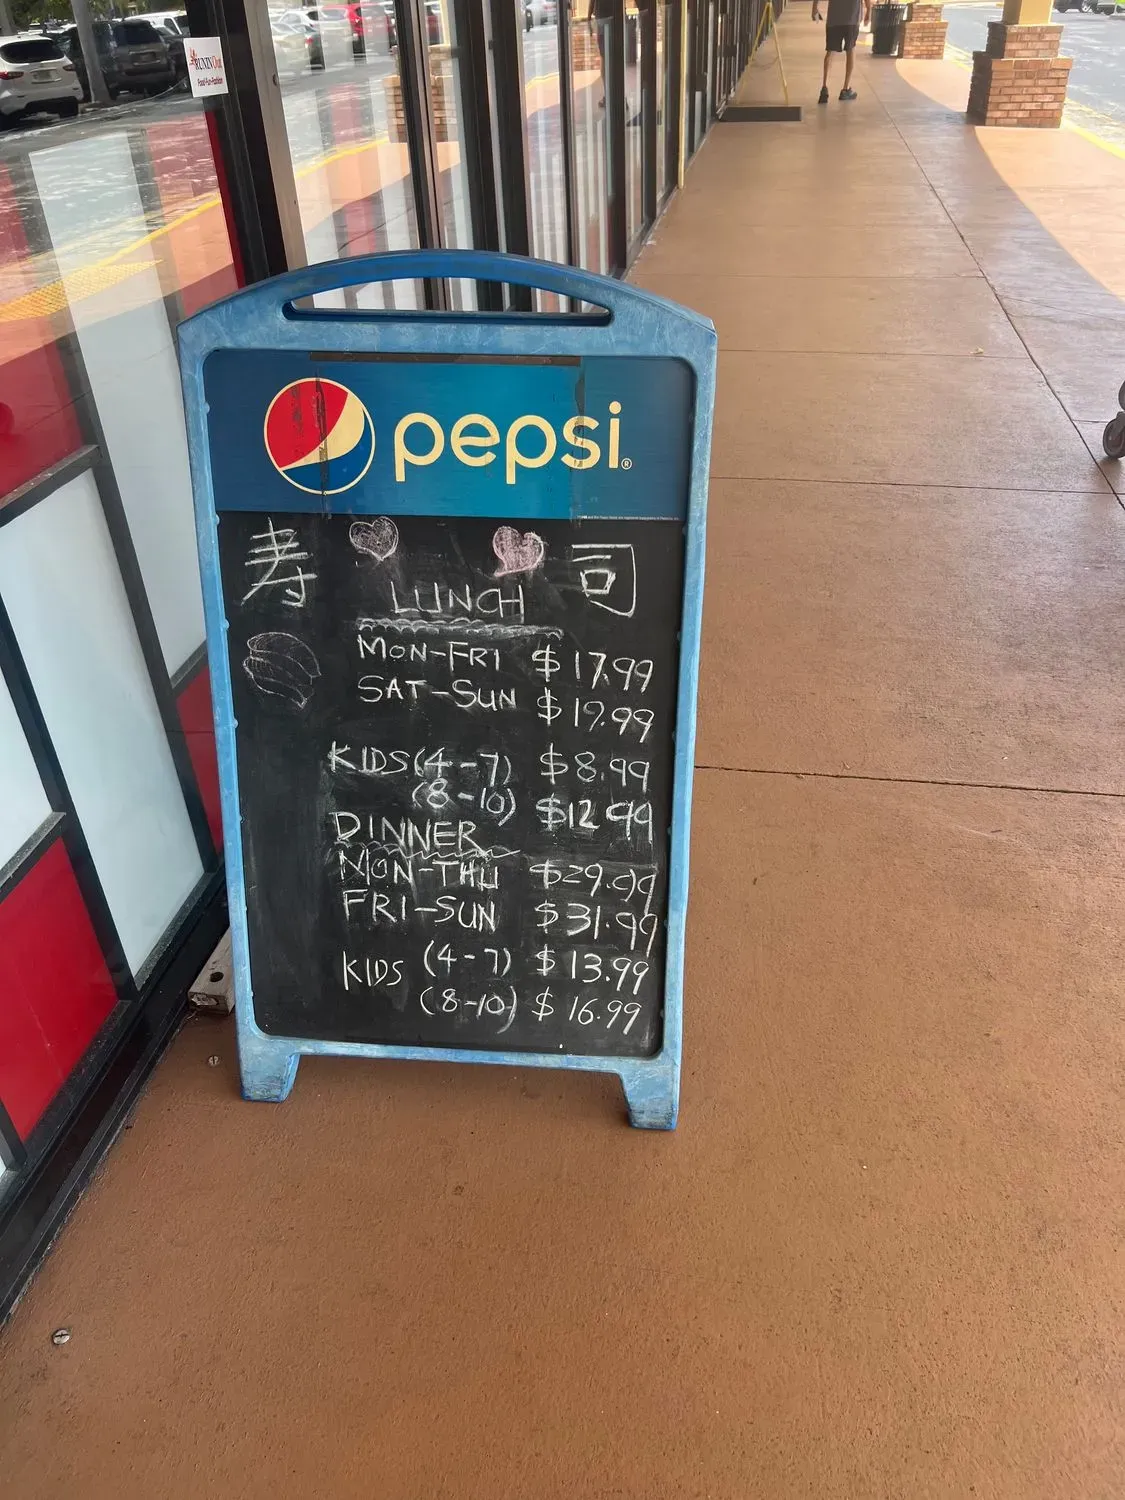 RUNIN Out
Food-Fun-Fashion
pepsi®
寿 司
LUNCH
MON-FRI $17.99
SAT-SUN $19.99
KIDS (4-7) $8.99
(8-10) $12.99
DINNER
MON-THU $29.99
FRI-SUN $31.99
KIDS (4-7) $13.99
(8-10) $16.99